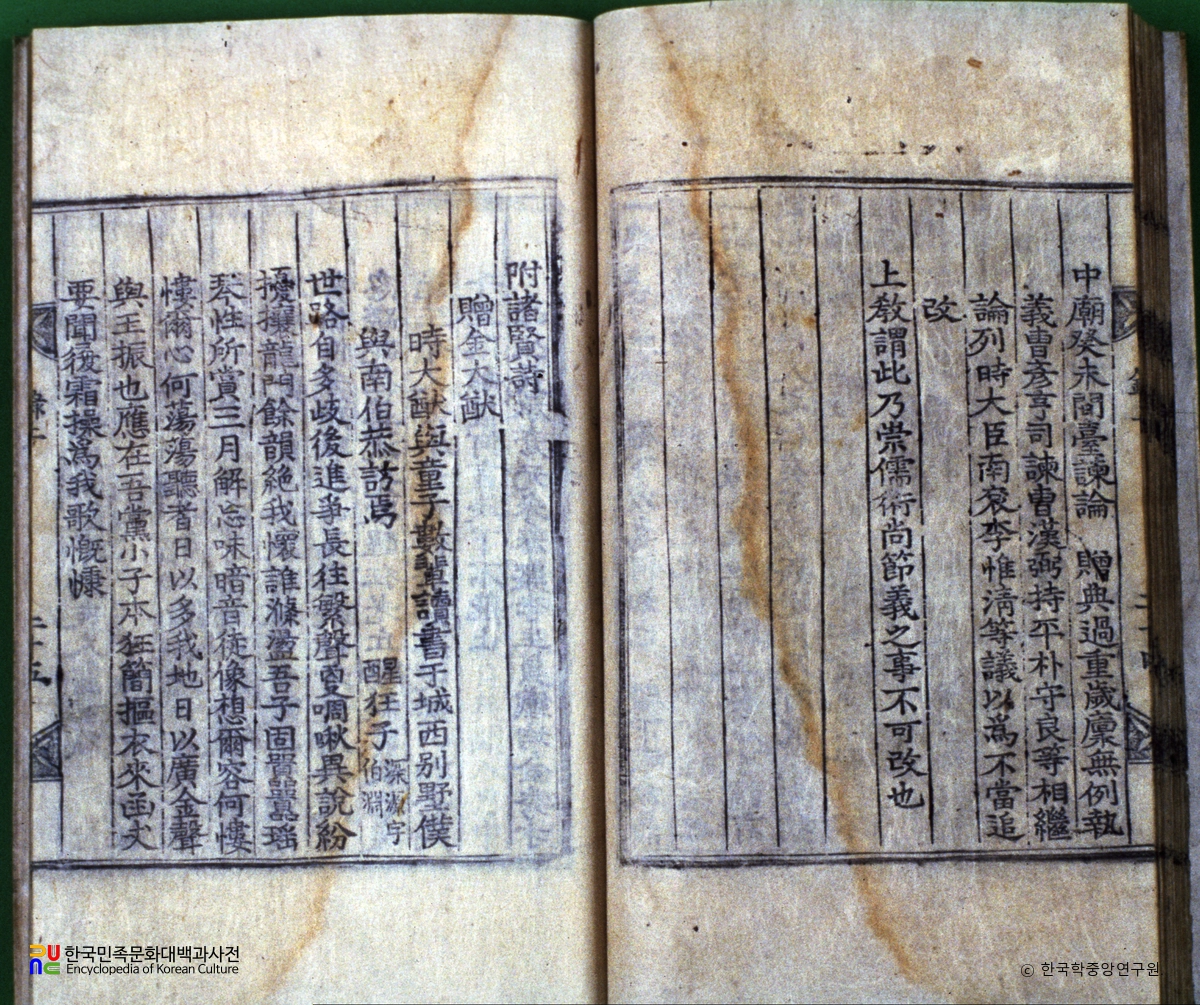 中廟癸未間臺諫論 贈典過重歲廩無例執
義曹彦亨司諫曹漢弼持平朴守良等相繼
論列時大臣南衮李惟淸等議以爲不當追
改
上敎謂此乃崇儒術尚節義之事不可改也
附諸賢詩
贈金大猷
時大猷與童子數輩讀書于城西別墅僕
與南伯恭訪焉 醒狂子 深源字伯淵
世路自多歧後進爭長往繁聲更啁啾異說紛
擾攘龍門餘韻絶我懷誰滌盪吾子固質美瑤
琴性所賞三月解忘味暗音徒像想爾容何悽
悽爾心何蕩蕩聽者日以多我地日以廣金聲
與玉振也應在吾黨小子本狂簡摳衣來函丈
要聞履霜操爲我歌慨慷
한국민족문화대백과사전
Encyclopedia of Korean Culture
© 한국학중앙연구원